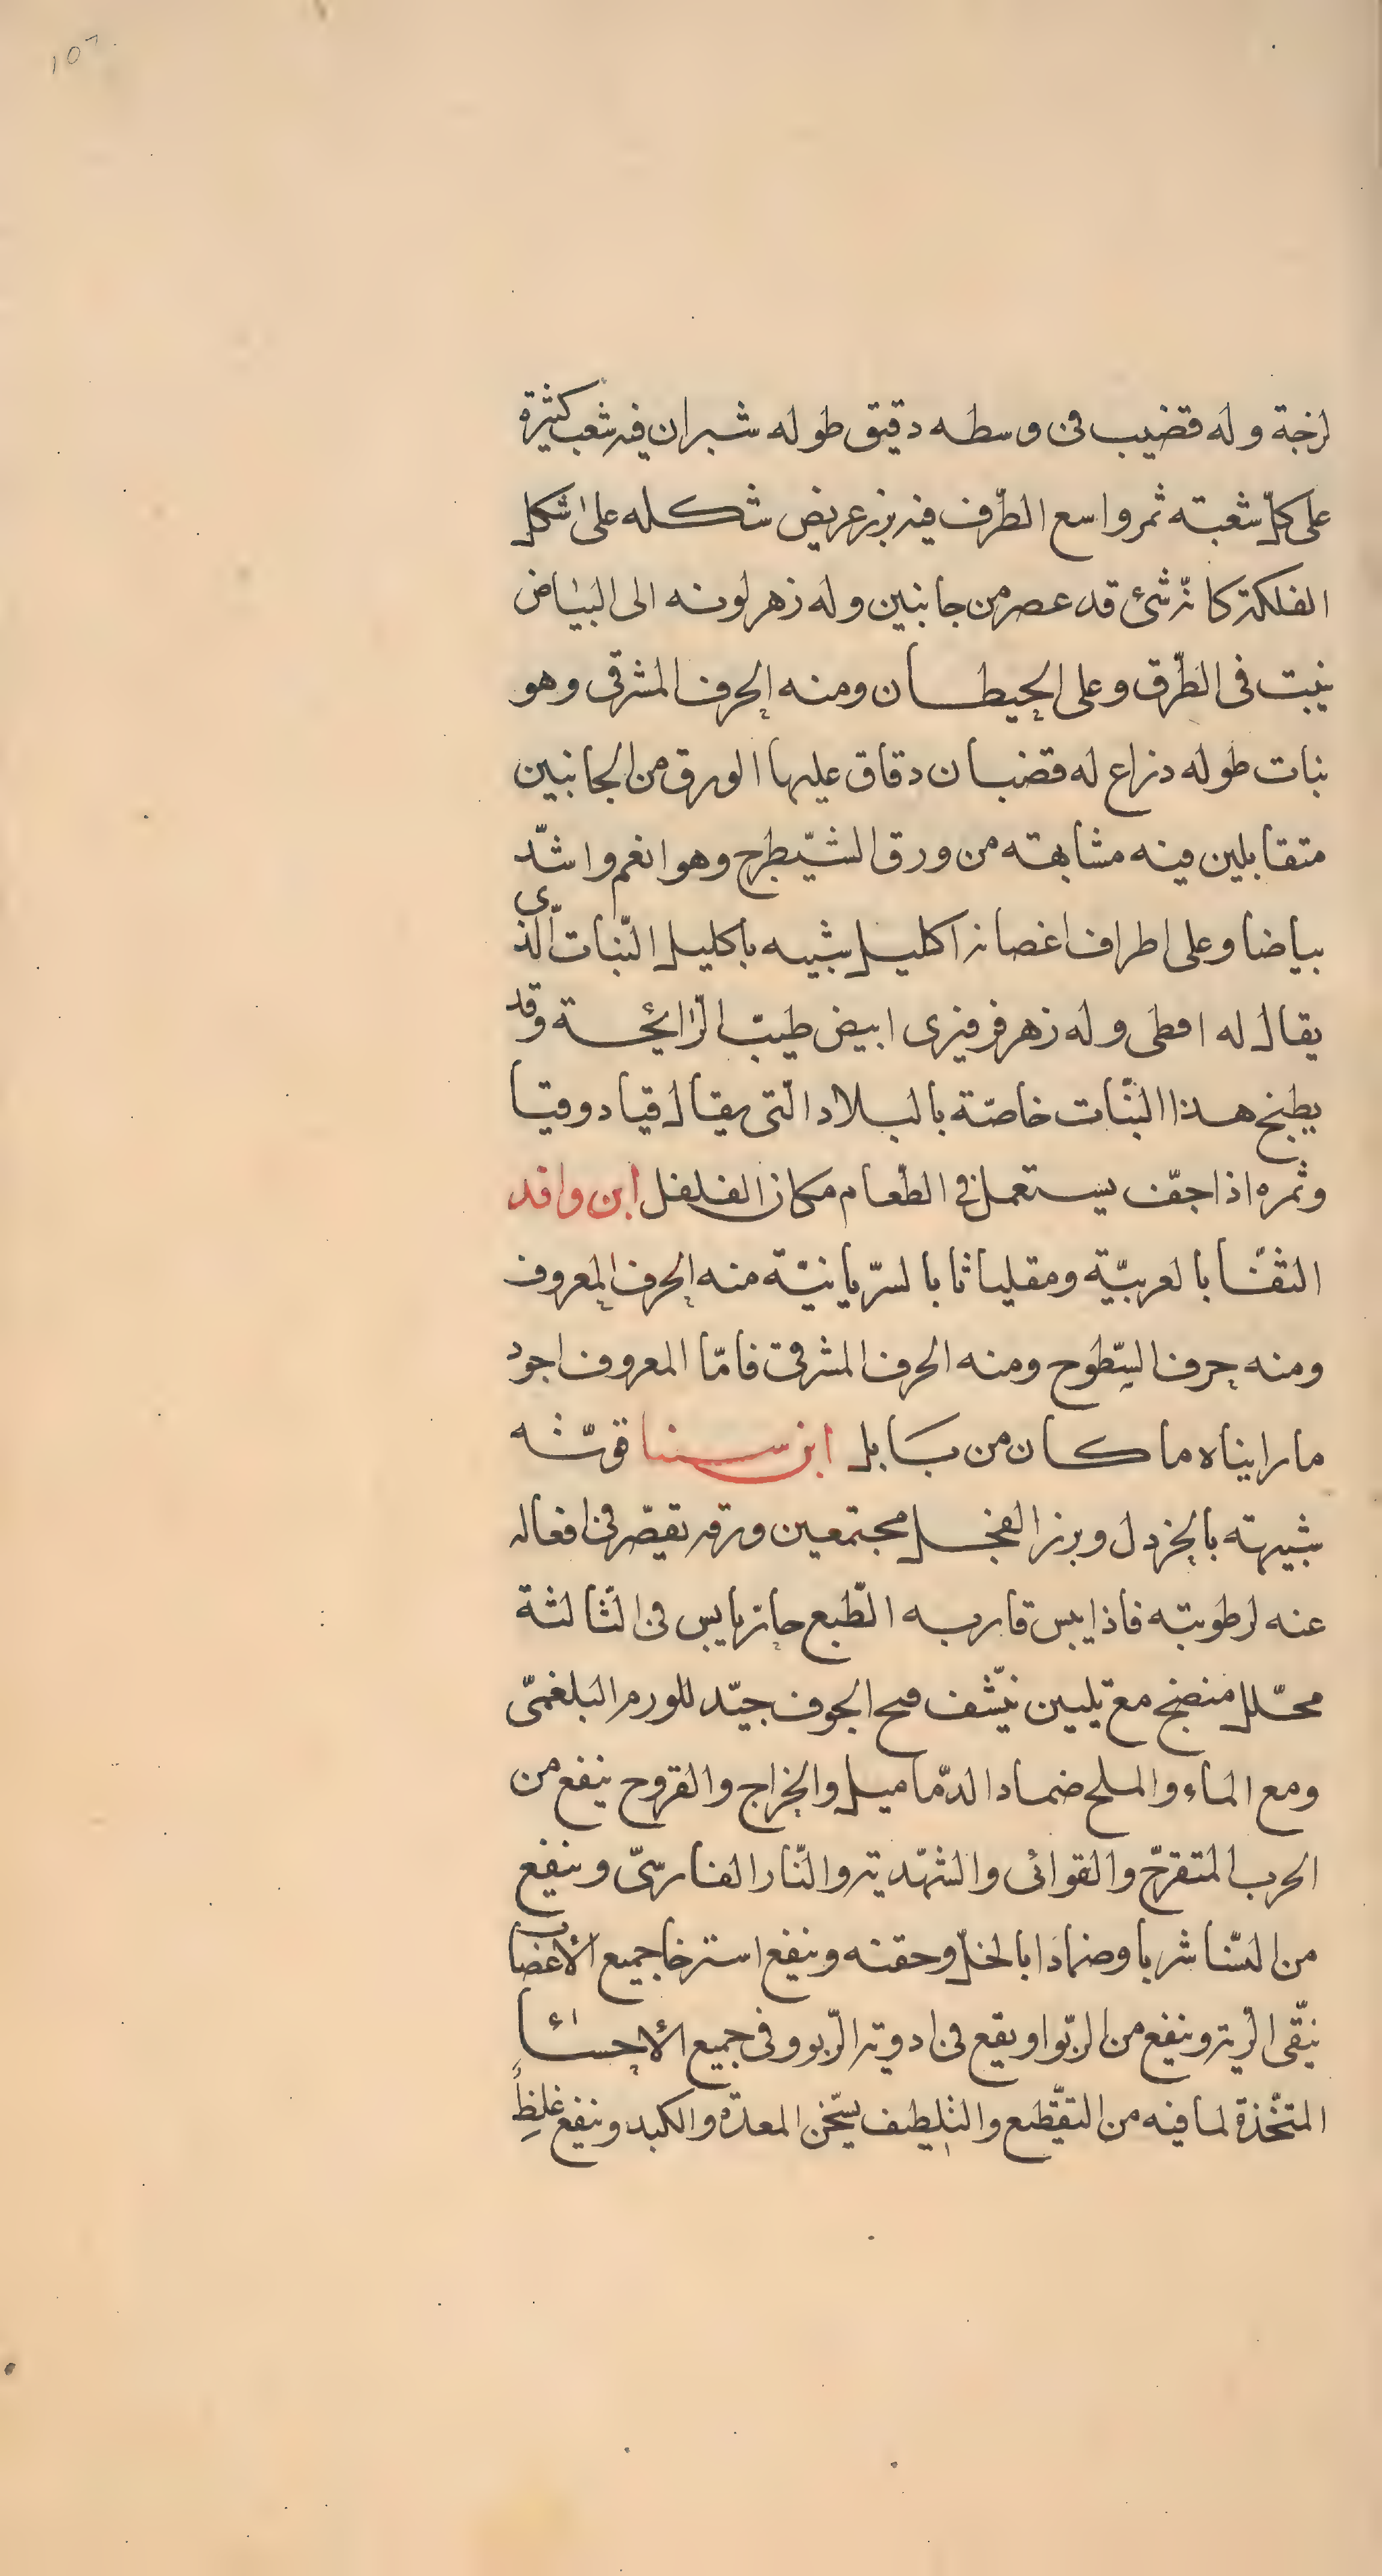 لزجة وله قضيب فى وسطه دقيق طوله شبران فيه شعب كثيرة
على كلّ شعبته ثمر واسع الطّرف فيه بزر عريض شكله على شكل
الفلكة كانّه شئ قد عصر من جانبين وله زهر لونه الى البياض
ينبت فى الطّرق وعلى الحيطان ومنه الحرف المشرقى وهو
نبات طوله ذراع له قضبان دقاق عليها الورق من الجانبين
متقابلين فيه مشابهته من ورق الشّيطرج وهو انعم واشدّ
بياضا وعلى اطراف اغصانه اكليل شبيه باكليل النّبات الّذى
يقال له اقطى وله زهر فرفيرى ابيض طيّب الرّائحة وقد
يطبخ هذا النّبات خاصّة بالبلاد الّتى يقال قيادوقيا
وثمره اذا جفّ يستعمل فى الطّعام مكان الفلفل ابن وافد
الثفّا بالعربيّة ومقلياثا بالسّريانيّة منه الحرف المعروف
ومنه حرف السّطوح ومنه الحرف المشرقى فامّا المعروف اجود
ما رايناه ما كان من بابل ابن سينا قوّته
شبيهته بالخردل وبزر الفجل مجتمعين وورقه يقصّر فى افعاله
عنه لرطوبته فاذا يبس قاربه الطّبع حارّ يابس فى الثّالثة
محلّل منضج مع تليين ينشّف قيح الجوف جيّد للورم البلغمىّ
ومع الماء والملح ضمادا لدّماميل والخراج والقروح ينفع من
الحرب المتقرّح والقوائى والشّهديّة والنّار الفارسىّ وينفع
من النّسا شربا وضمادا بالخلّ وحقنه وينفع استرخا جميع الاعضاب
ينقّى الرّية وينفع من الرّبو او يقع فى ادوية الرّبو وفى جميع الاحساء
المتّخذة لما فيه من التقّطيع والتلطيف يسخّن المعدّه والكبد وينفع غلظ